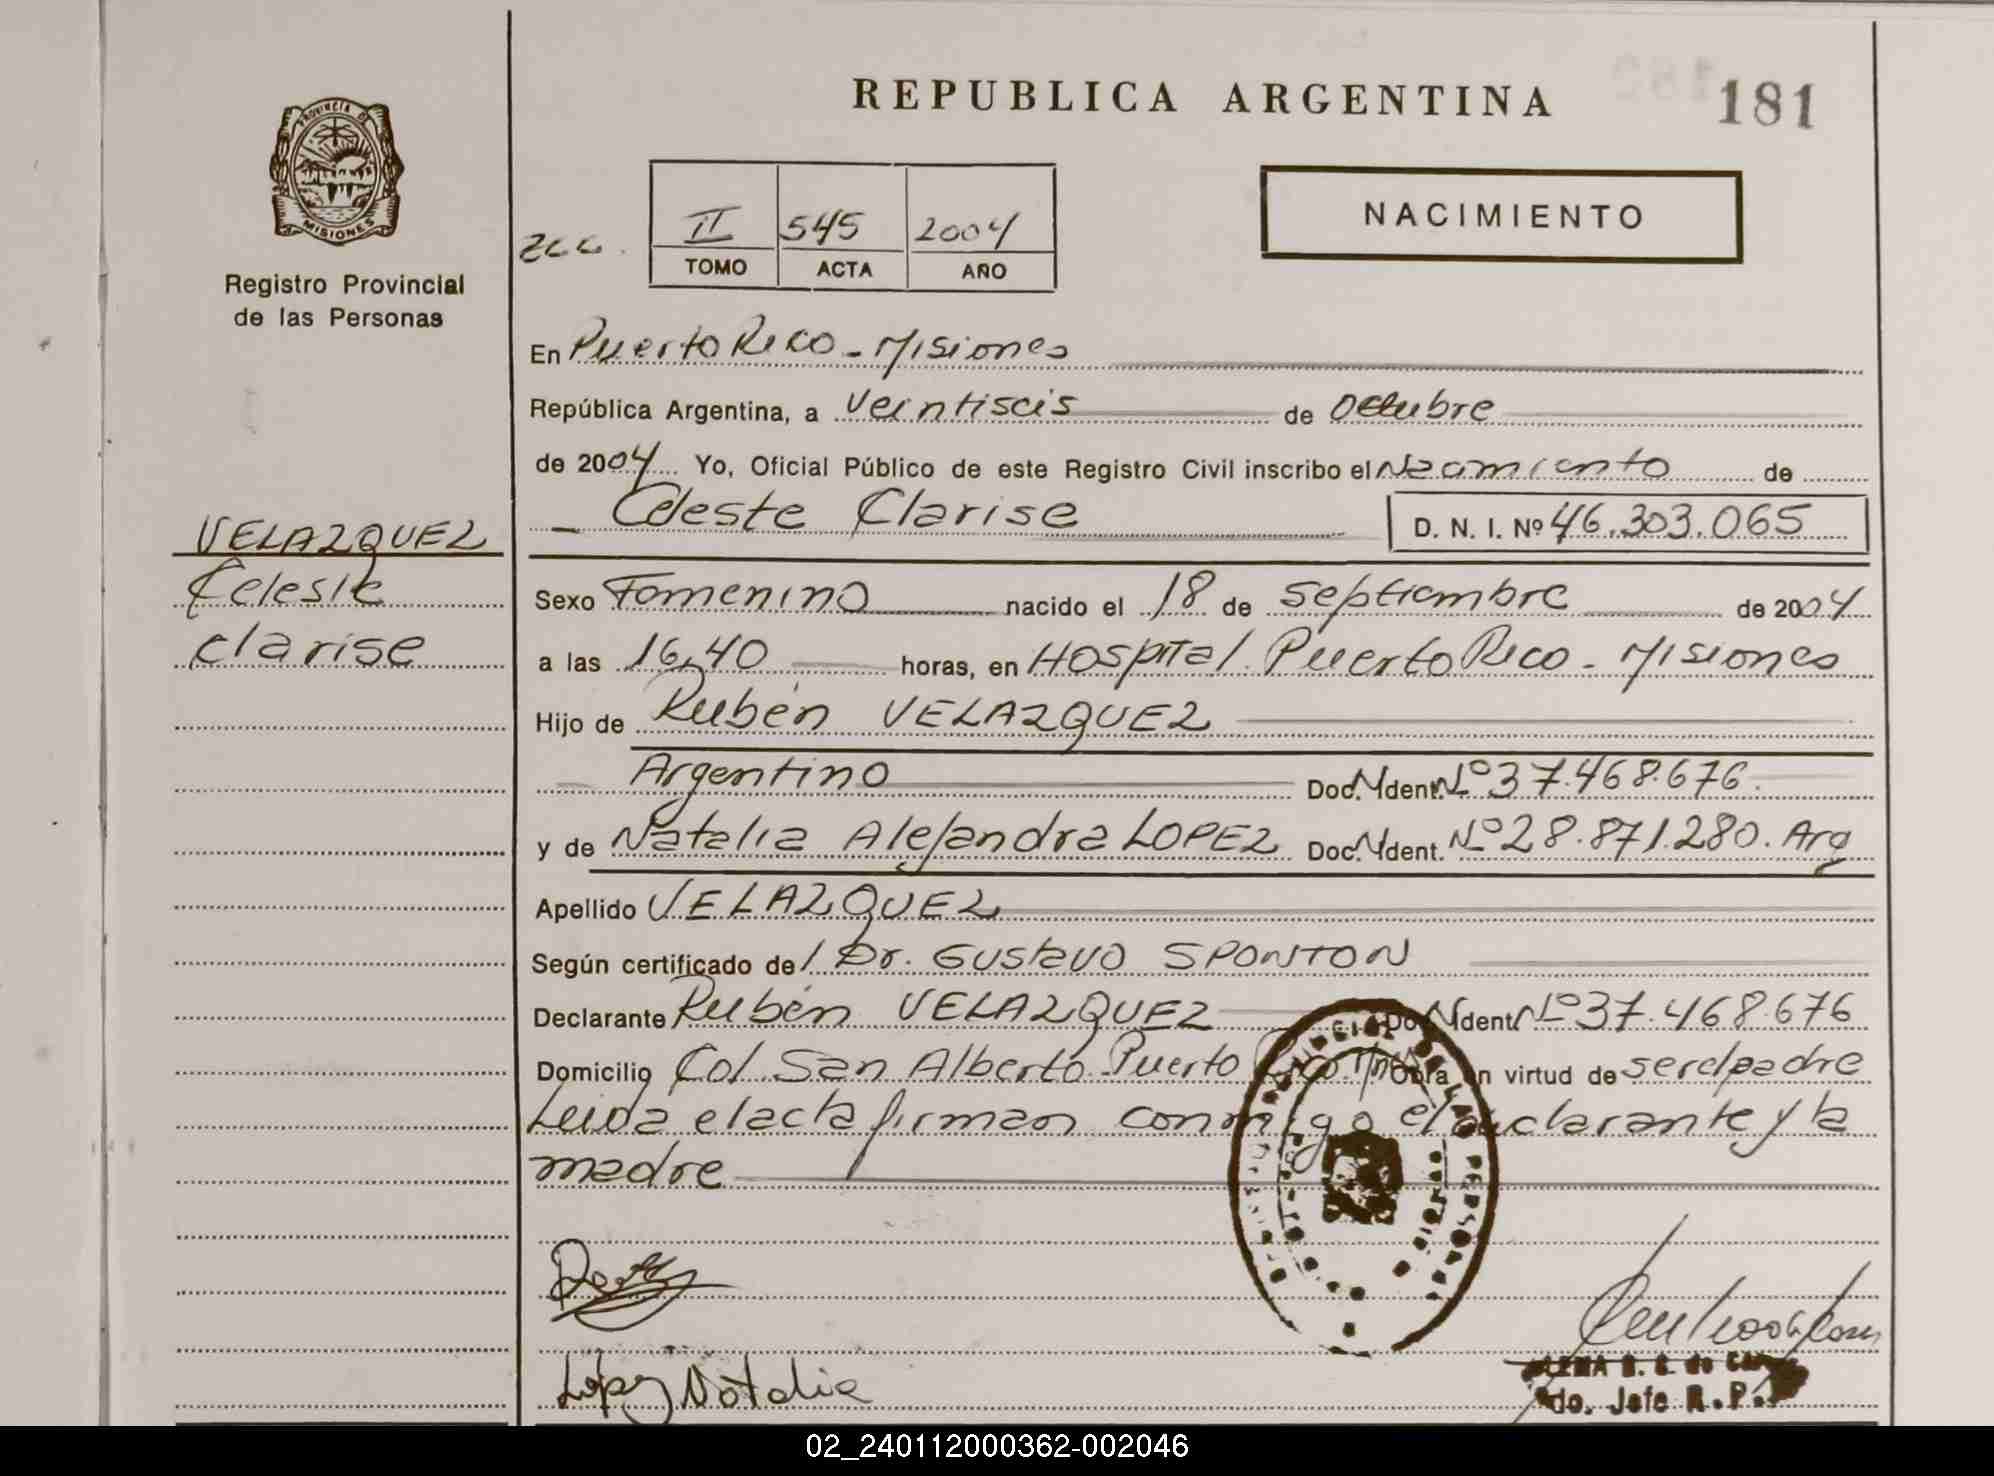 REPUBLICA ARGENTINA
181
PROVINCIA DE
MISIONES
Registro Provincial
de las Personas
II 545 2004
TOMO ACTA AÑO
NACIMIENTO
En Puerto Rico - Misiones
República Argentina, a Veintiseis de Octubre
de 2004 Yo, Oficial Público de este Registro Civil inscribo el Nacimiento de
Celeste Clarise D. N. I. Nº 46.303.065
VELAZQUEZ
Celeste
Clarise
Sexo Femenino nacido el 18 de Septiembre de 2004
a las 16,40 horas, en Hospital Puerto Rico - Misiones
Hijo de Rubén VELAZQUEZ
Argentino Doc. Ident. Nº 37.468.676
y de Natalia Alejandra LOPEZ Doc. Ident. Nº 28.871.280. Arg
Apellido VELAZQUEZ
Según certificado del Dr. Gustavo SPONTON
Declarante Rubén VELAZQUEZ Doc. Ident Nº 37.468.676
Domicilio Col. San Alberto Puerto Rico. Obra en virtud de ser el padre
Leida el acta firman conmigo el declarante y la
madre
López Natalia
do. Jefe R.P.
02_240112000362-002046